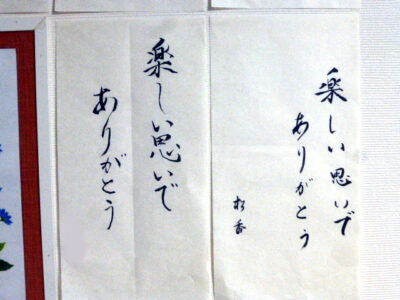 楽しい思いで
ありがとう
楽しい思いで
ありがとう